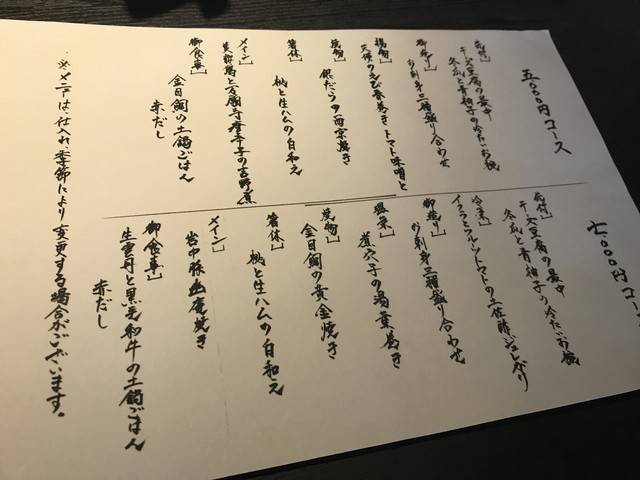 五〇〇〇円コース
先付]
チーズ豆腐の最中
冬瓜と青柚子の冷たいお椀
御造り]
お刺身三種盛り合わせ
揚物]
天使のえび春巻き トマト味噌と
焼物]
銀だらの西京焼き
箸休]
桃と生ハムの白和え
メイン]
美桜鶏と万願寺唐辛子の吉野煮
御食事]
金目鯛の土鍋ごはん
赤だし
七〇〇〇円コース
先付]
チーズ豆腐の最中
冬瓜と青柚子の冷たいお椀
冷菜]
イクラとフルーツトマトの土佐酢ジュレがけ
御造り]
お刺身三種盛り合わせ
温菜]
煮穴子の湯葉巻き
焼物]
金目鯛の黄金焼き
箸休]
桃と生ハムの白和え
メイン]
岩中豚幽庵焼き
御食事]
生雲丹と黒毛和牛の土鍋ごはん
赤だし
※メニューは、仕入れ、季節により変更する場合がございます。